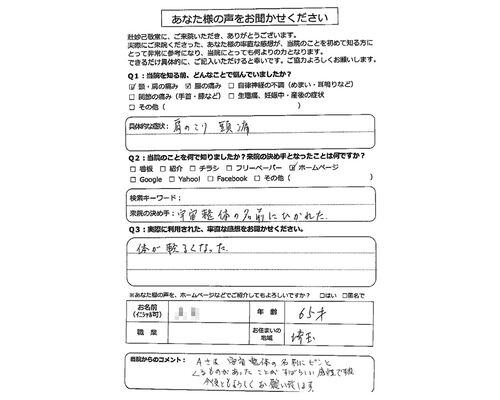 あなた様の声をお聞かせください
壮妙己敬堂に、ご来院いただき、ありがとうございます。
実際にご来院くださった、あなた様の率直な感想が、当院のことを初めて知る方に
とって非常に参考になり、当院にとっても何よりの力となります。
できるだけ具体的に、ご記入いただけると幸いです。ご協力よろしくお願いします。
Q1：当院を知る前、どんなことで悩んでいましたか？
☑ 頭・肩の痛み ☑ 腰の痛み □ 自律神経の不調（めまい・耳鳴りなど）
□ 関節の痛み（手首・膝など） □ 生理痛、妊娠中・産後の症状
□ その他（ ）
具体的な症状： 肩のこり 頭痛
Q2：当院のことを何で知りましたか？来院の決め手となったことは何ですか？
□ 看板 □ 紹介 □ チラシ □ フリーペーパー ☑ ホームページ
□ Google □ Yahoo! □ Facebook □ その他（ ）
検索キーワード：
来院の決め手： 宇宙整体の名前にひかれた
Q3：実際に利用された、率直な感想をお聞かせください。
体が軽くなった
※あなた様の声を、ホームページなどでご紹介してもよろしいですか？ □はい □匿名で
お名前
（イニシャル可）
年 齢 65才
職 業
お住まいの
地域 埼玉
当院からのコメント： Aさま 宇宙整体の名前にピンと
くるものがあったことがすばらしい感性ですね
今後ともよろしくお願い致します。